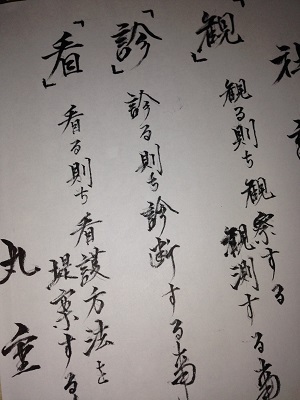 「観」
観る則ち観察する
観測する
「診」
診る則ち診断する
「看」
看る則ち看護方法を
提案する
丸